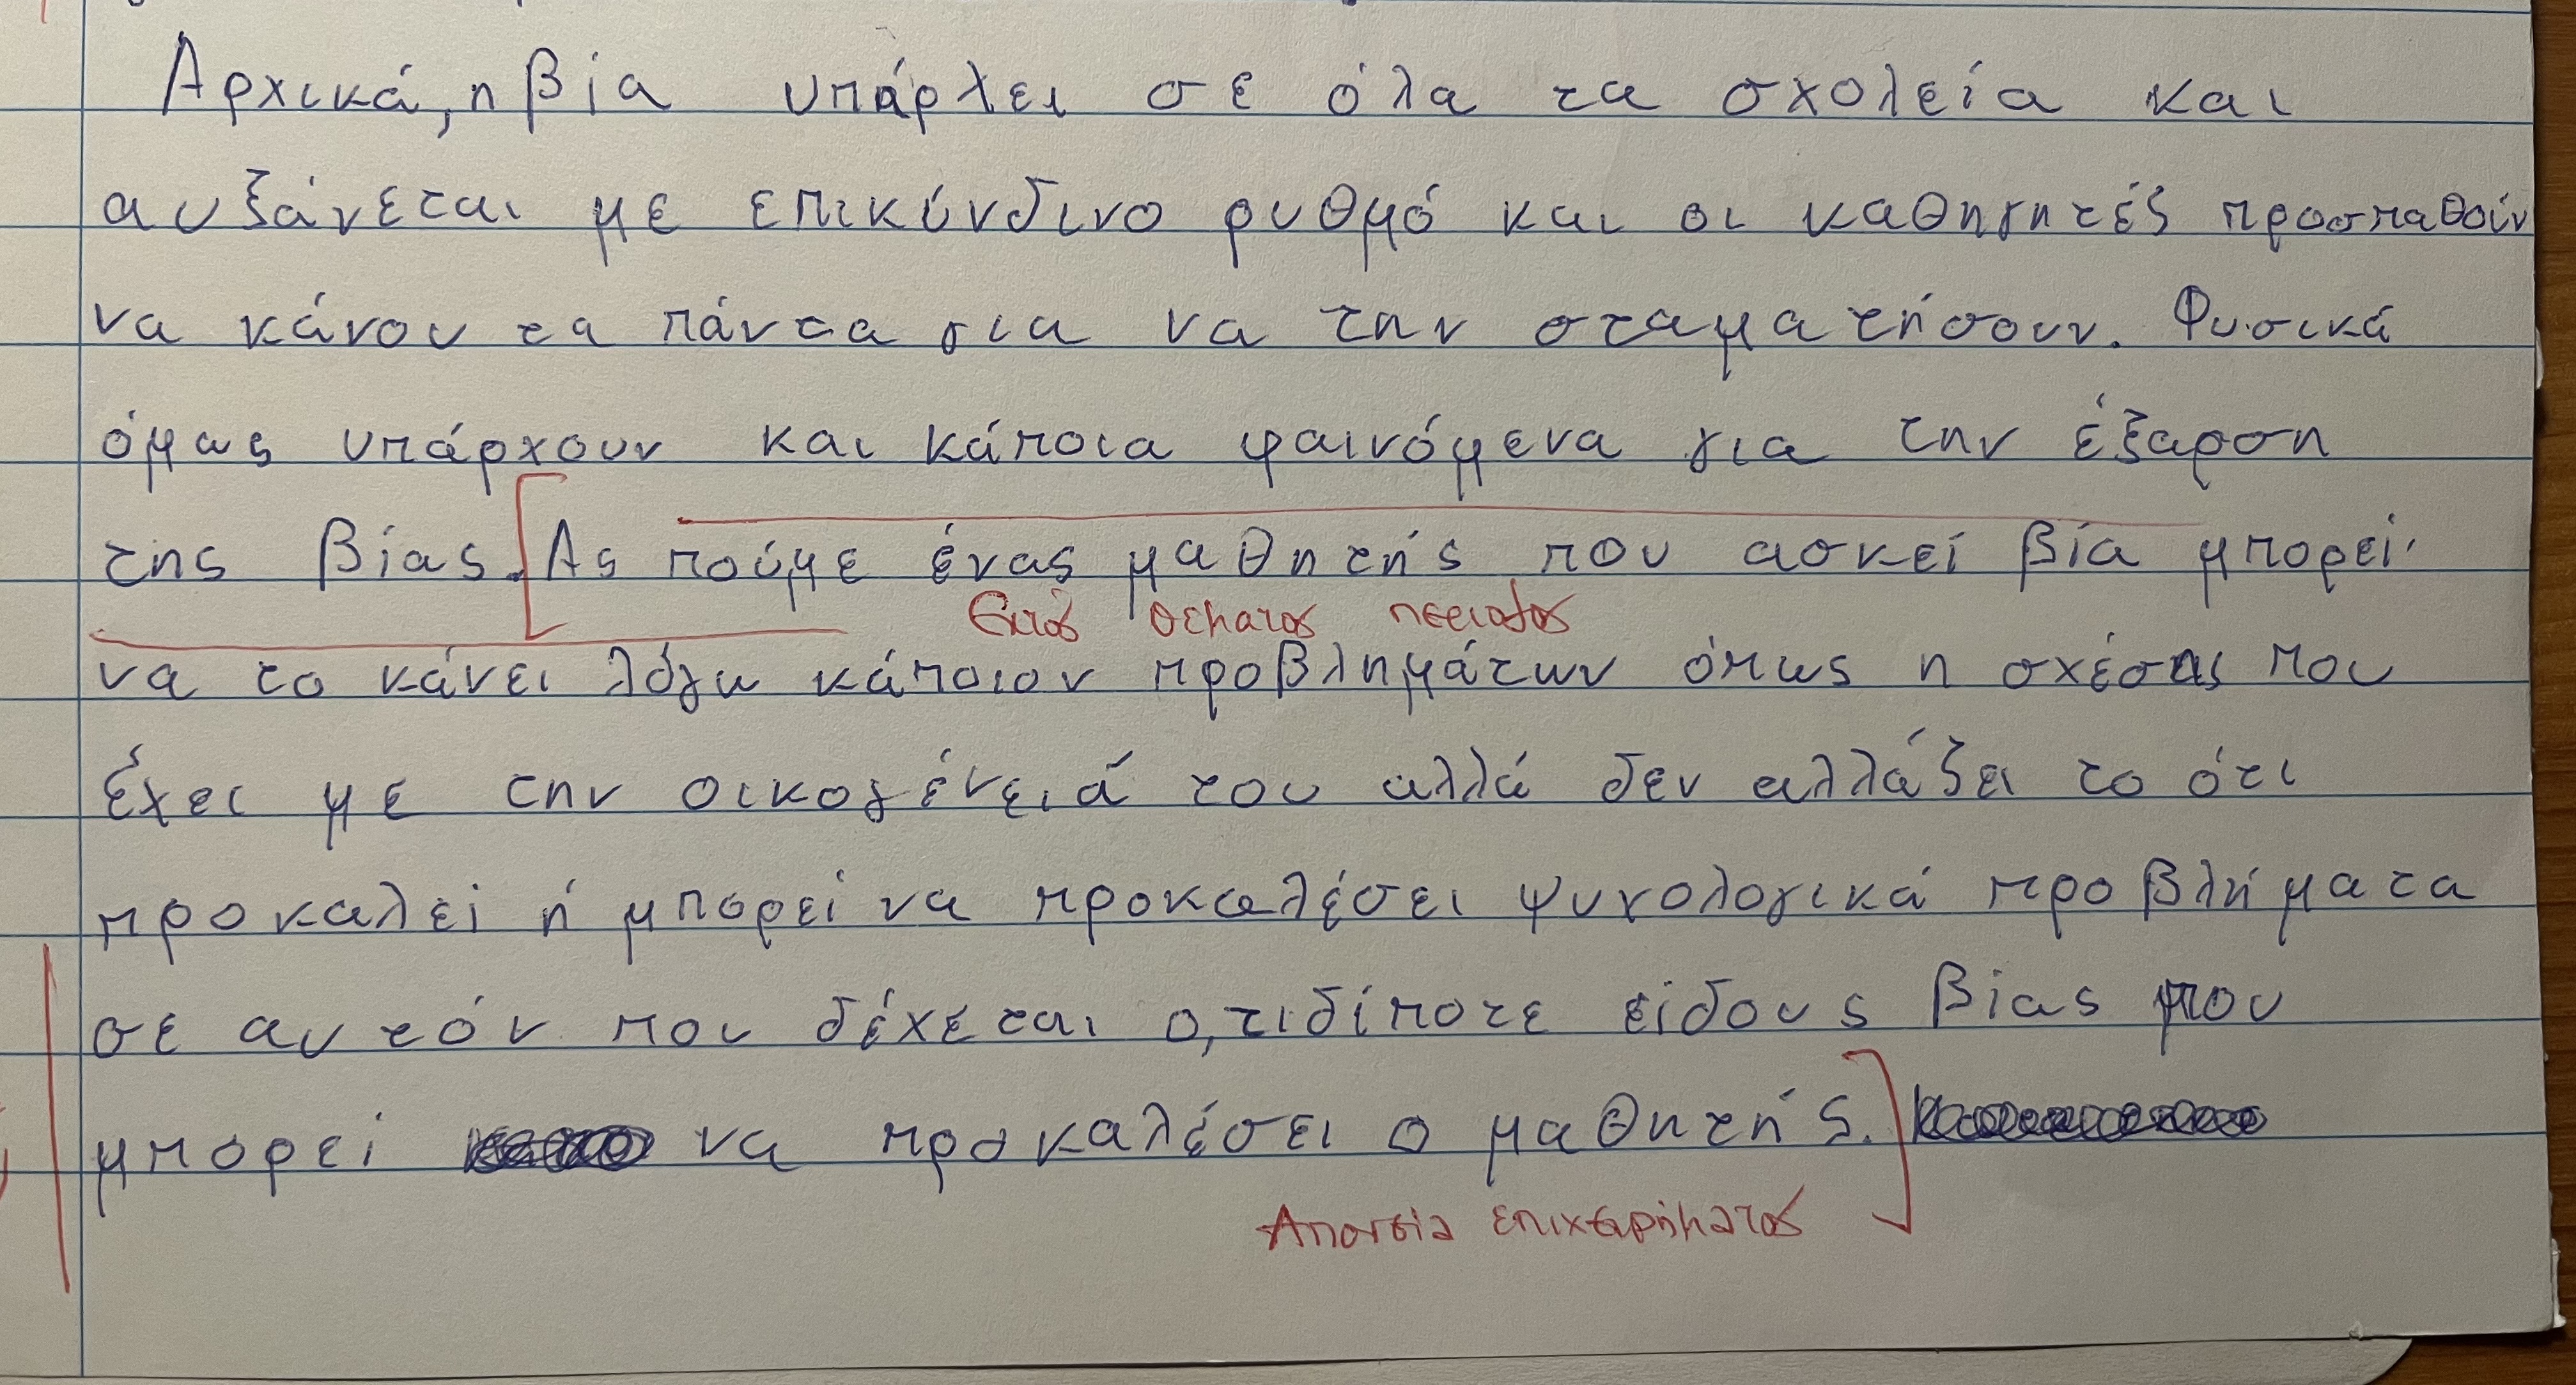 Αρχικά, η βία υπάρχει σε όλα τα σχολεία και
αυξάνεται με επικύνδινο ρυθμό και οι καθηγητές προσπαθούν
να κάνου τα πάντα για να την σταματήσουν. Φυσικά
όμως υπάρχουν και κάποια φαινόμενα για την έξαρση
της βίας. Ας πούμε ένας μαθητής που ασκεί βία μπορεί
Εκτός θέματος
να το κάνει λόγω κάποιον προβλημάτων όπως η σχέσης που
έχει με την οικογένειά του αλλά δεν αλλάζει το ότι
προκαλεί ή μπορεί να προκαλέσει ψυχολογικά προβλήματα
σε αυτόν που δέχεται ο,τιδίποτε είδους βίας που
μπορεί να προκαλέσει ο μαθητής.
Απουσία επιχειρήματος